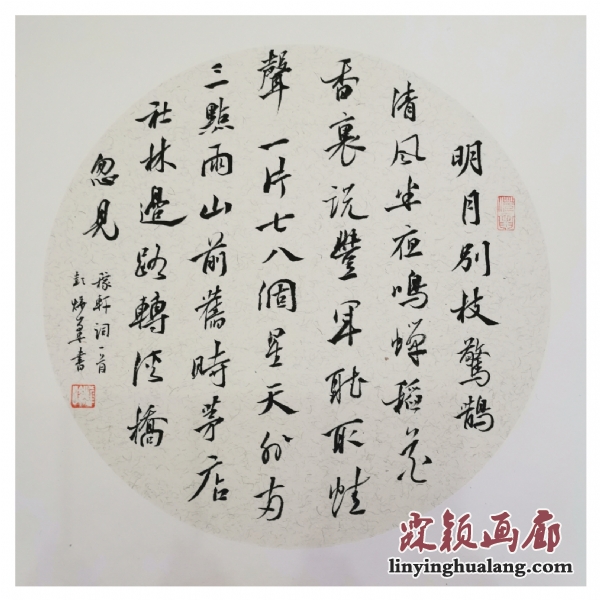 明月别枝驚鵲
清风半夜鳴蟬稻花
香裏説豐年聽取蛙
聲一片七八個星天外两
三點雨山前舊時茅店
社林邊路轉溪橋
忽見
稼軒詞一首
彭書
霖颖画廊
linyinghualang.com